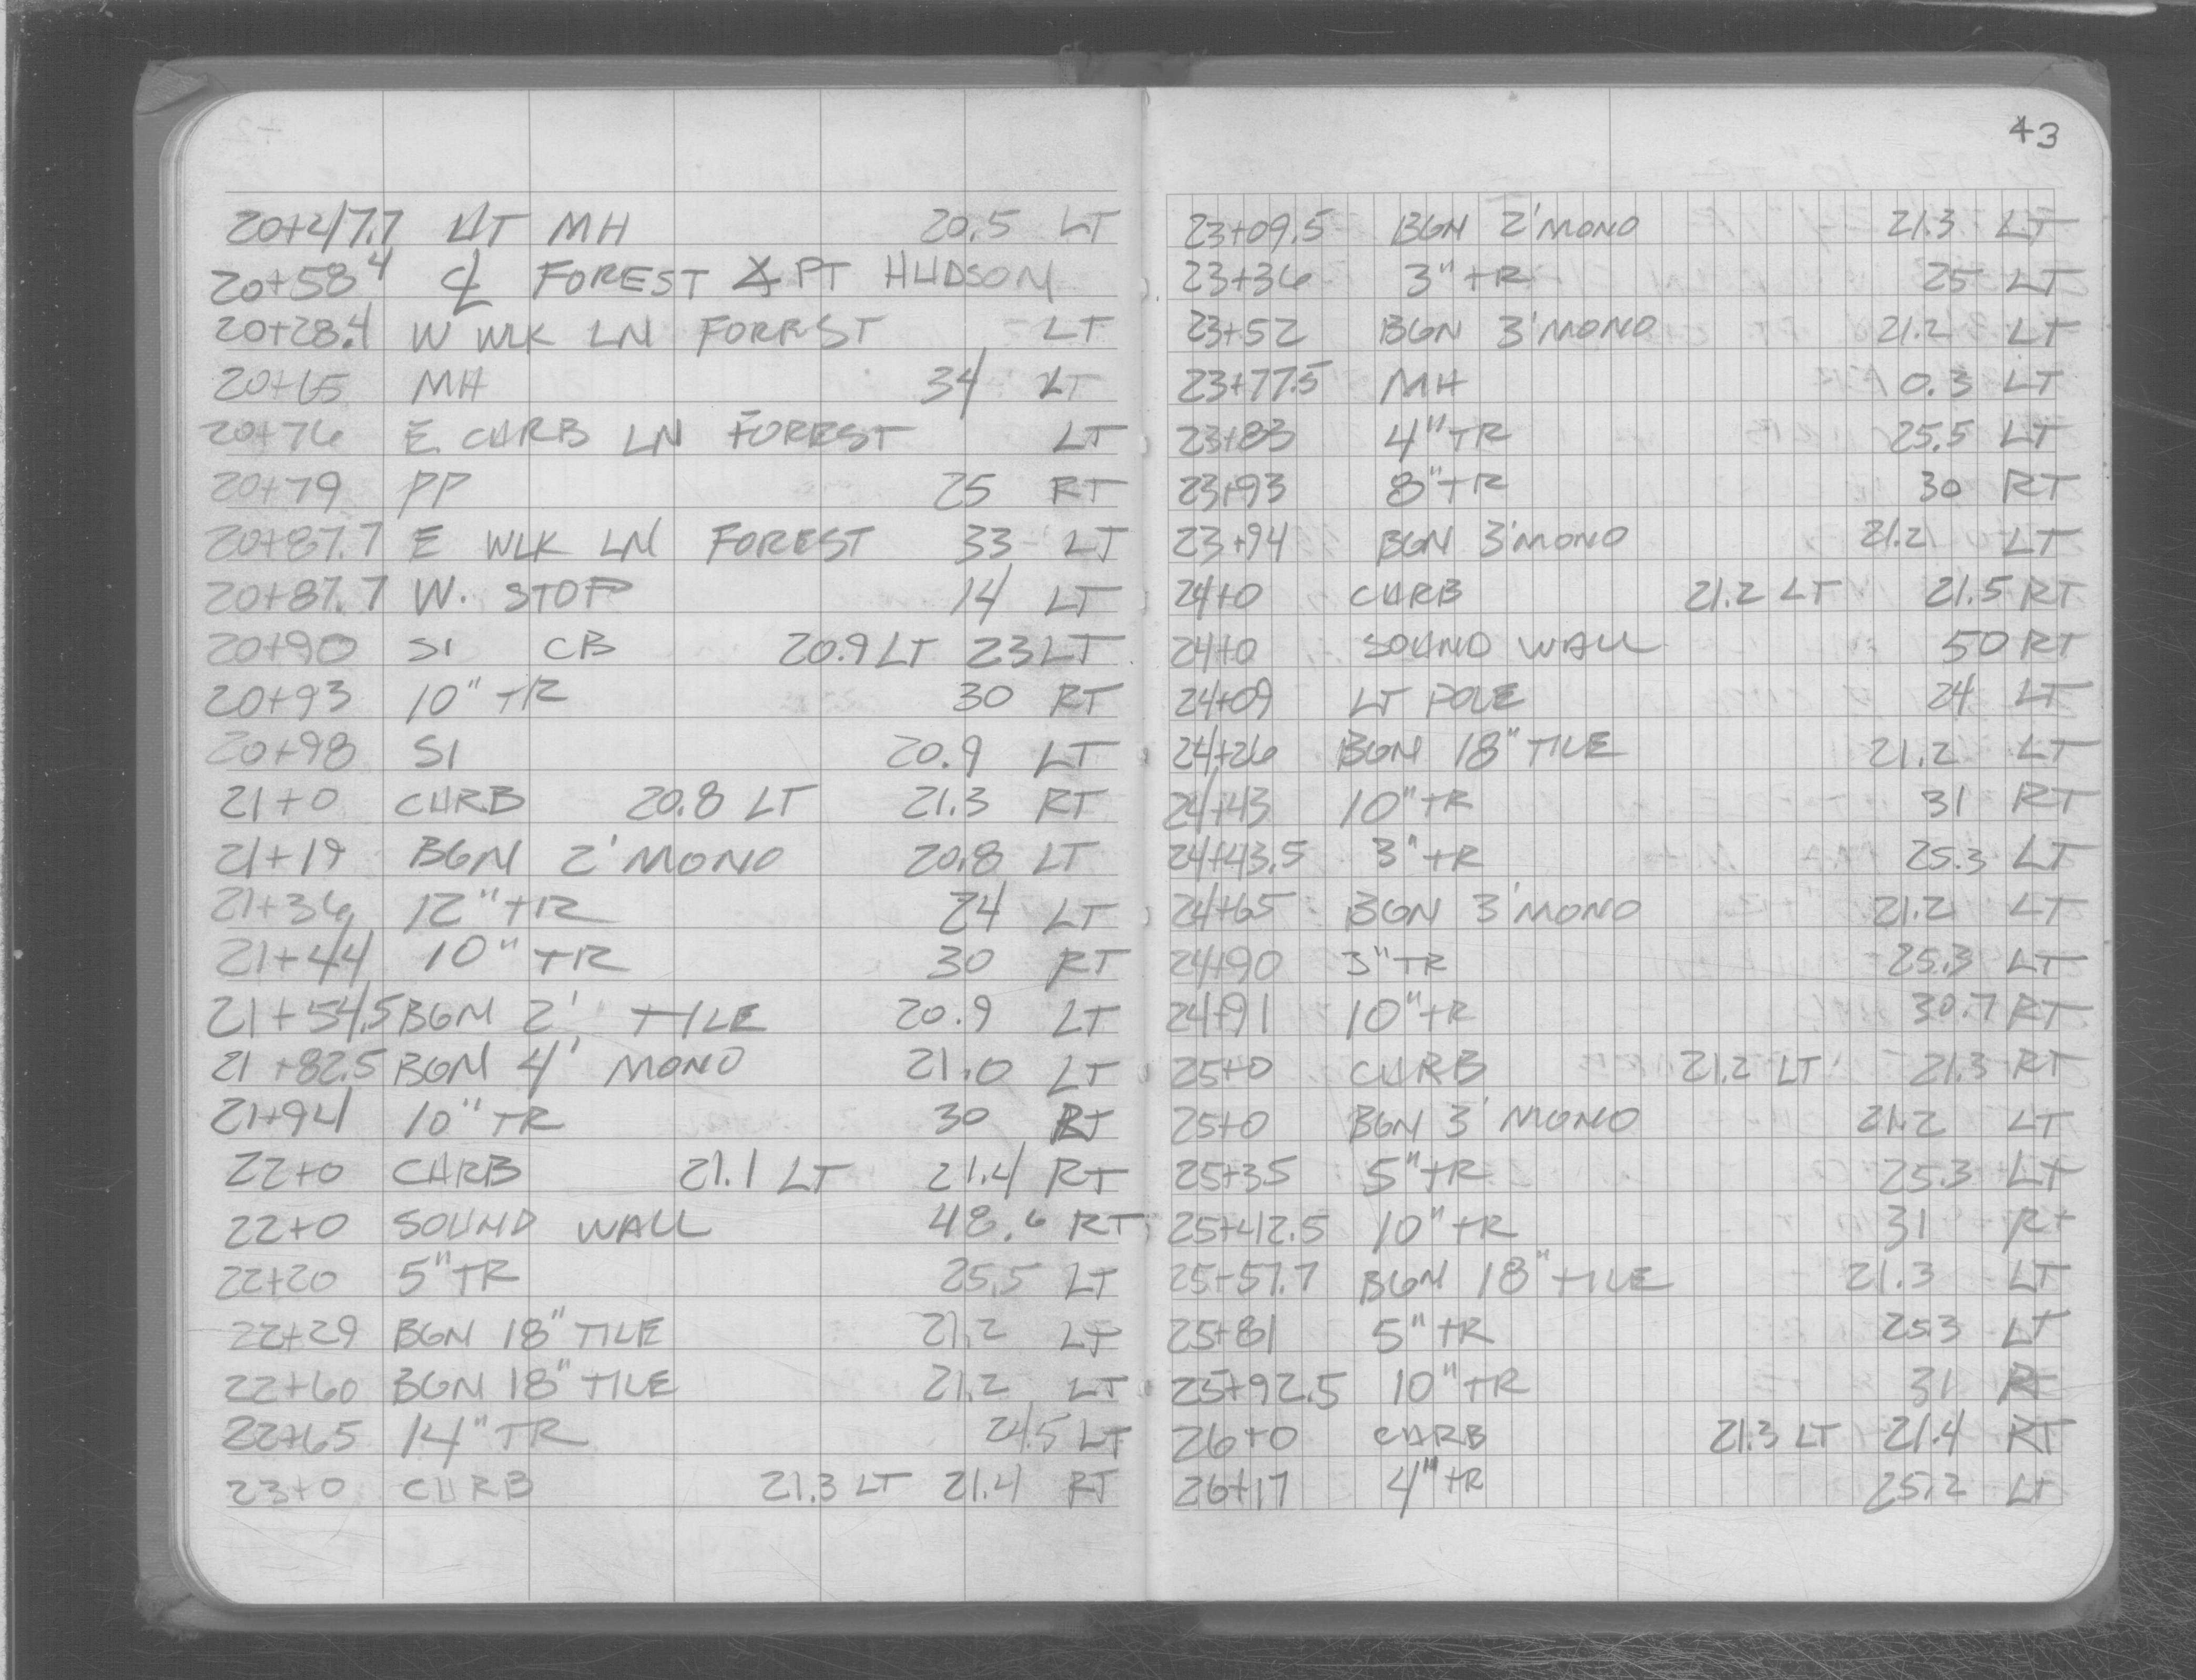 43
20+47.7 LIT MH 20.5 LT
20+58.4 ℄ FOREST ∡ PT HUDSON
20+28.4 W WLK LN FOREST LT
20+65 MH 34 LT
20+76 E. CURB LN FOREST LT
20+79 PP 25 RT
20+87.7 E WLK LN FOREST 33 LT
20+87.7 W. STOP 14 LT
20+90 SI CB 20.9 LT 23 LT
20+93 10" TR 30 RT
20+98 SI 20.9 LT
21+0 CURB 20.8 LT 21.3 RT
21+19 BGN 2' MONO 20.8 LT
21+36 12" TR 24 LT
21+44 10" TR 30 RT
21+54.5 BGN 2' TILE 20.9 LT
21+82.5 BGN 4' MONO 21.0 LT
21+94 10" TR 30 RT
22+0 CURB 21.1 LT 21.4 RT
22+0 SOUND WALL 48.6 RT
22+20 5" TR 25.5 LT
22+29 BGN 18" TILE 21.2 LT
22+60 BGN 18" TILE 21.2 LT
22+65 14" TR 24.5 LT
23+0 CURB 21.3 LT 21.4 RT
23+09.5 BGN 2' MONO 21.3 LT
23+36 3" TR 25 LT
23+52 BGN 3' MONO 21.2 LT
23+77.5 MH 0.3 LT
23+83 4" TR 25.5 LT
23+93 8" TR 30 RT
23+94 BGN 3' MONO 21.2 LT
24+0 CURB 21.2 LT 21.5 RT
24+0 SOUND WALL 50 RT
24+09 LT POLE 24 LT
24+26 BGN 18" TILE 21.2 LT
24+43 10" TR 31 RT
24+43.5 3" TR 25.3 LT
24+65 BGN 3' MONO 21.2 LT
24+90 3" TR 25.3 LT
24+91 10" TR 30.7 RT
25+0 CURB 21.2 LT 21.3 RT
25+0 BGN 3' MONO 21.2 LT
25+35 5" TR 25.3 LT
25+42.5 10" TR 31 RT
25+57.7 BGN 18" TILE 21.3 LT
25+81 5" TR 25.3 LT
25+92.5 10" TR 31 RT
26+0 CURB 21.3 LT 21.4 RT
26+17 4" TR 25.2 LT